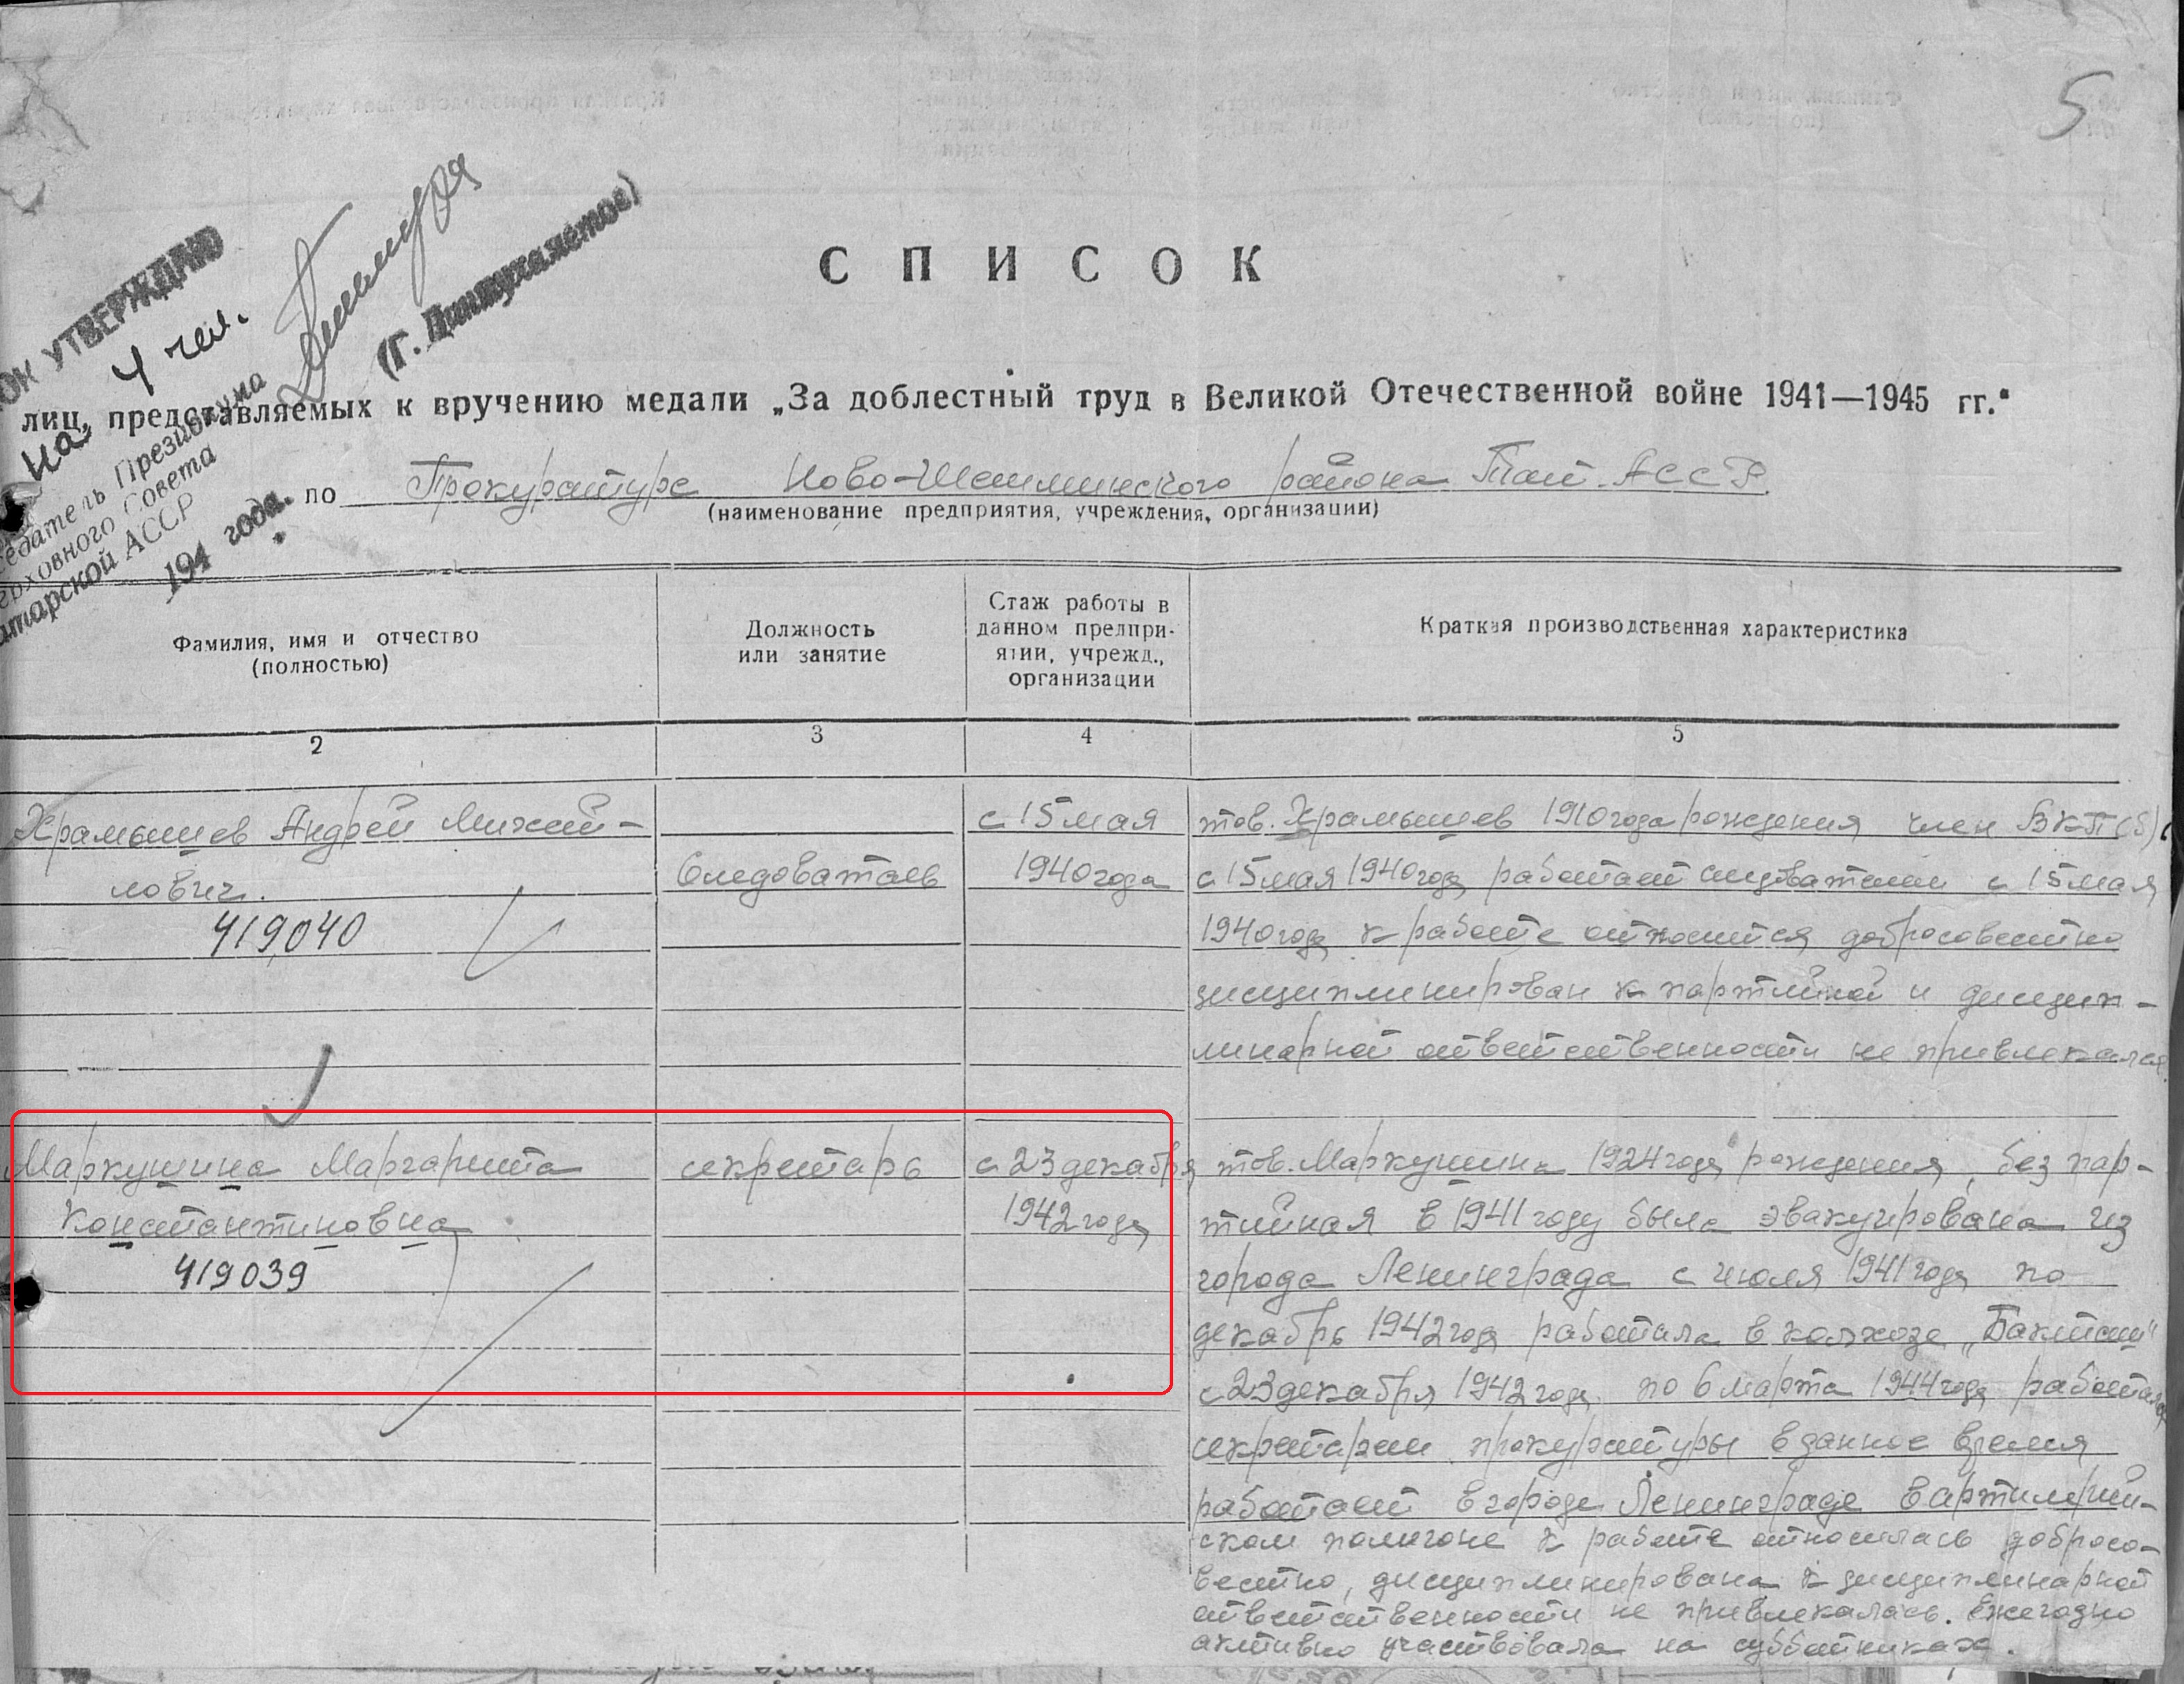 5
ОН УТВЕРЖДАЮ
на 4 чел.
седатель Президиума
ерховного Совета
атарской АССР
194 года.
(Г. Динмухаметов)
СПИСОК
лиц, представляемых к вручению медали „За доблестный труд в Великой Отечественной войне 1941—1945 гг.“
по Прокуратуре Ново-Шешминского района Тат. АССР.
(наименование предприятия, учреждения, организации)
Фамилия, имя и отчество (полностью)
Должность или занятие
Стаж работы в данном предприятии, учрежд., организации
Краткая производственная характеристика
2 3 4 5
Храмышев Андрей Михай-
лович.
419040
Следователь
с 15 мая
1940 года
тов. Храмышев 1910 года рождения член ВКП(б)
с 15 мая 1940 года работает следователем с 15 мая
1940 года к работе относится добросовестно
дисциплинирован к партийной и дисцип-
линарной ответственности не привлекался.
Маркушина Маргарита
Константиновна
419039
секретарь
с 23 декабря
1942 года
тов. Маркушина 1924 года рождения, без пар-
тийная в 1941 году была эвакуирована из
города Ленинграда с июля 1941 года по
декабрь 1942 года работала в колхозе
с 23 декабря 1942 года по 6 марта 1944 года работала
секретарем прокуратуры в данное время
работает в городе Ленинграде в артилерий-
ском полигоне к работе относилась добросо-
вестно, дисциплинирована к дисциплинарной
ответственности не привлекалась. Ежегодно
активно участвовала на субботниках.